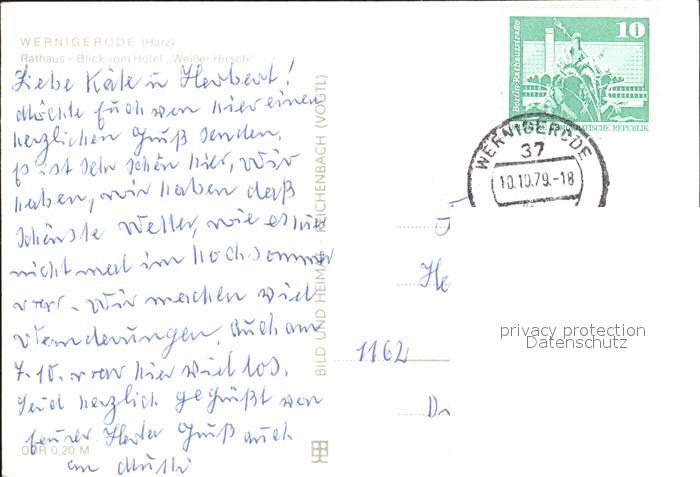 WERNIGERODE (Harz)
Rathaus - Blick vom Hotel „Weißer Hirsch“
Liebe Käte u Herbert!
Möchte Euch von hier einen
herzlichen Gruß senden.
Es ist sehr schön hier, wir
haben, wir haben daß
schönste Wetter, wie es hier
nicht mal im Hochsommer
war. Wir machen viel
Wanderungen. Auch am
7.10. war hier viel los.
Seid herzlich gegrüßt von
Gruß auch
an Mutti
DDR 0,20 M
BILD UND HEIMAT · REICHENBACH (VOGTL)
Berlin, Rathausstraße
10
DEUTSCHE DEMOKRATISCHE REPUBLIK
WERNIGERODE
37
10.10.79.-18
He
1162
Dr
privacy protection
Datenschutz